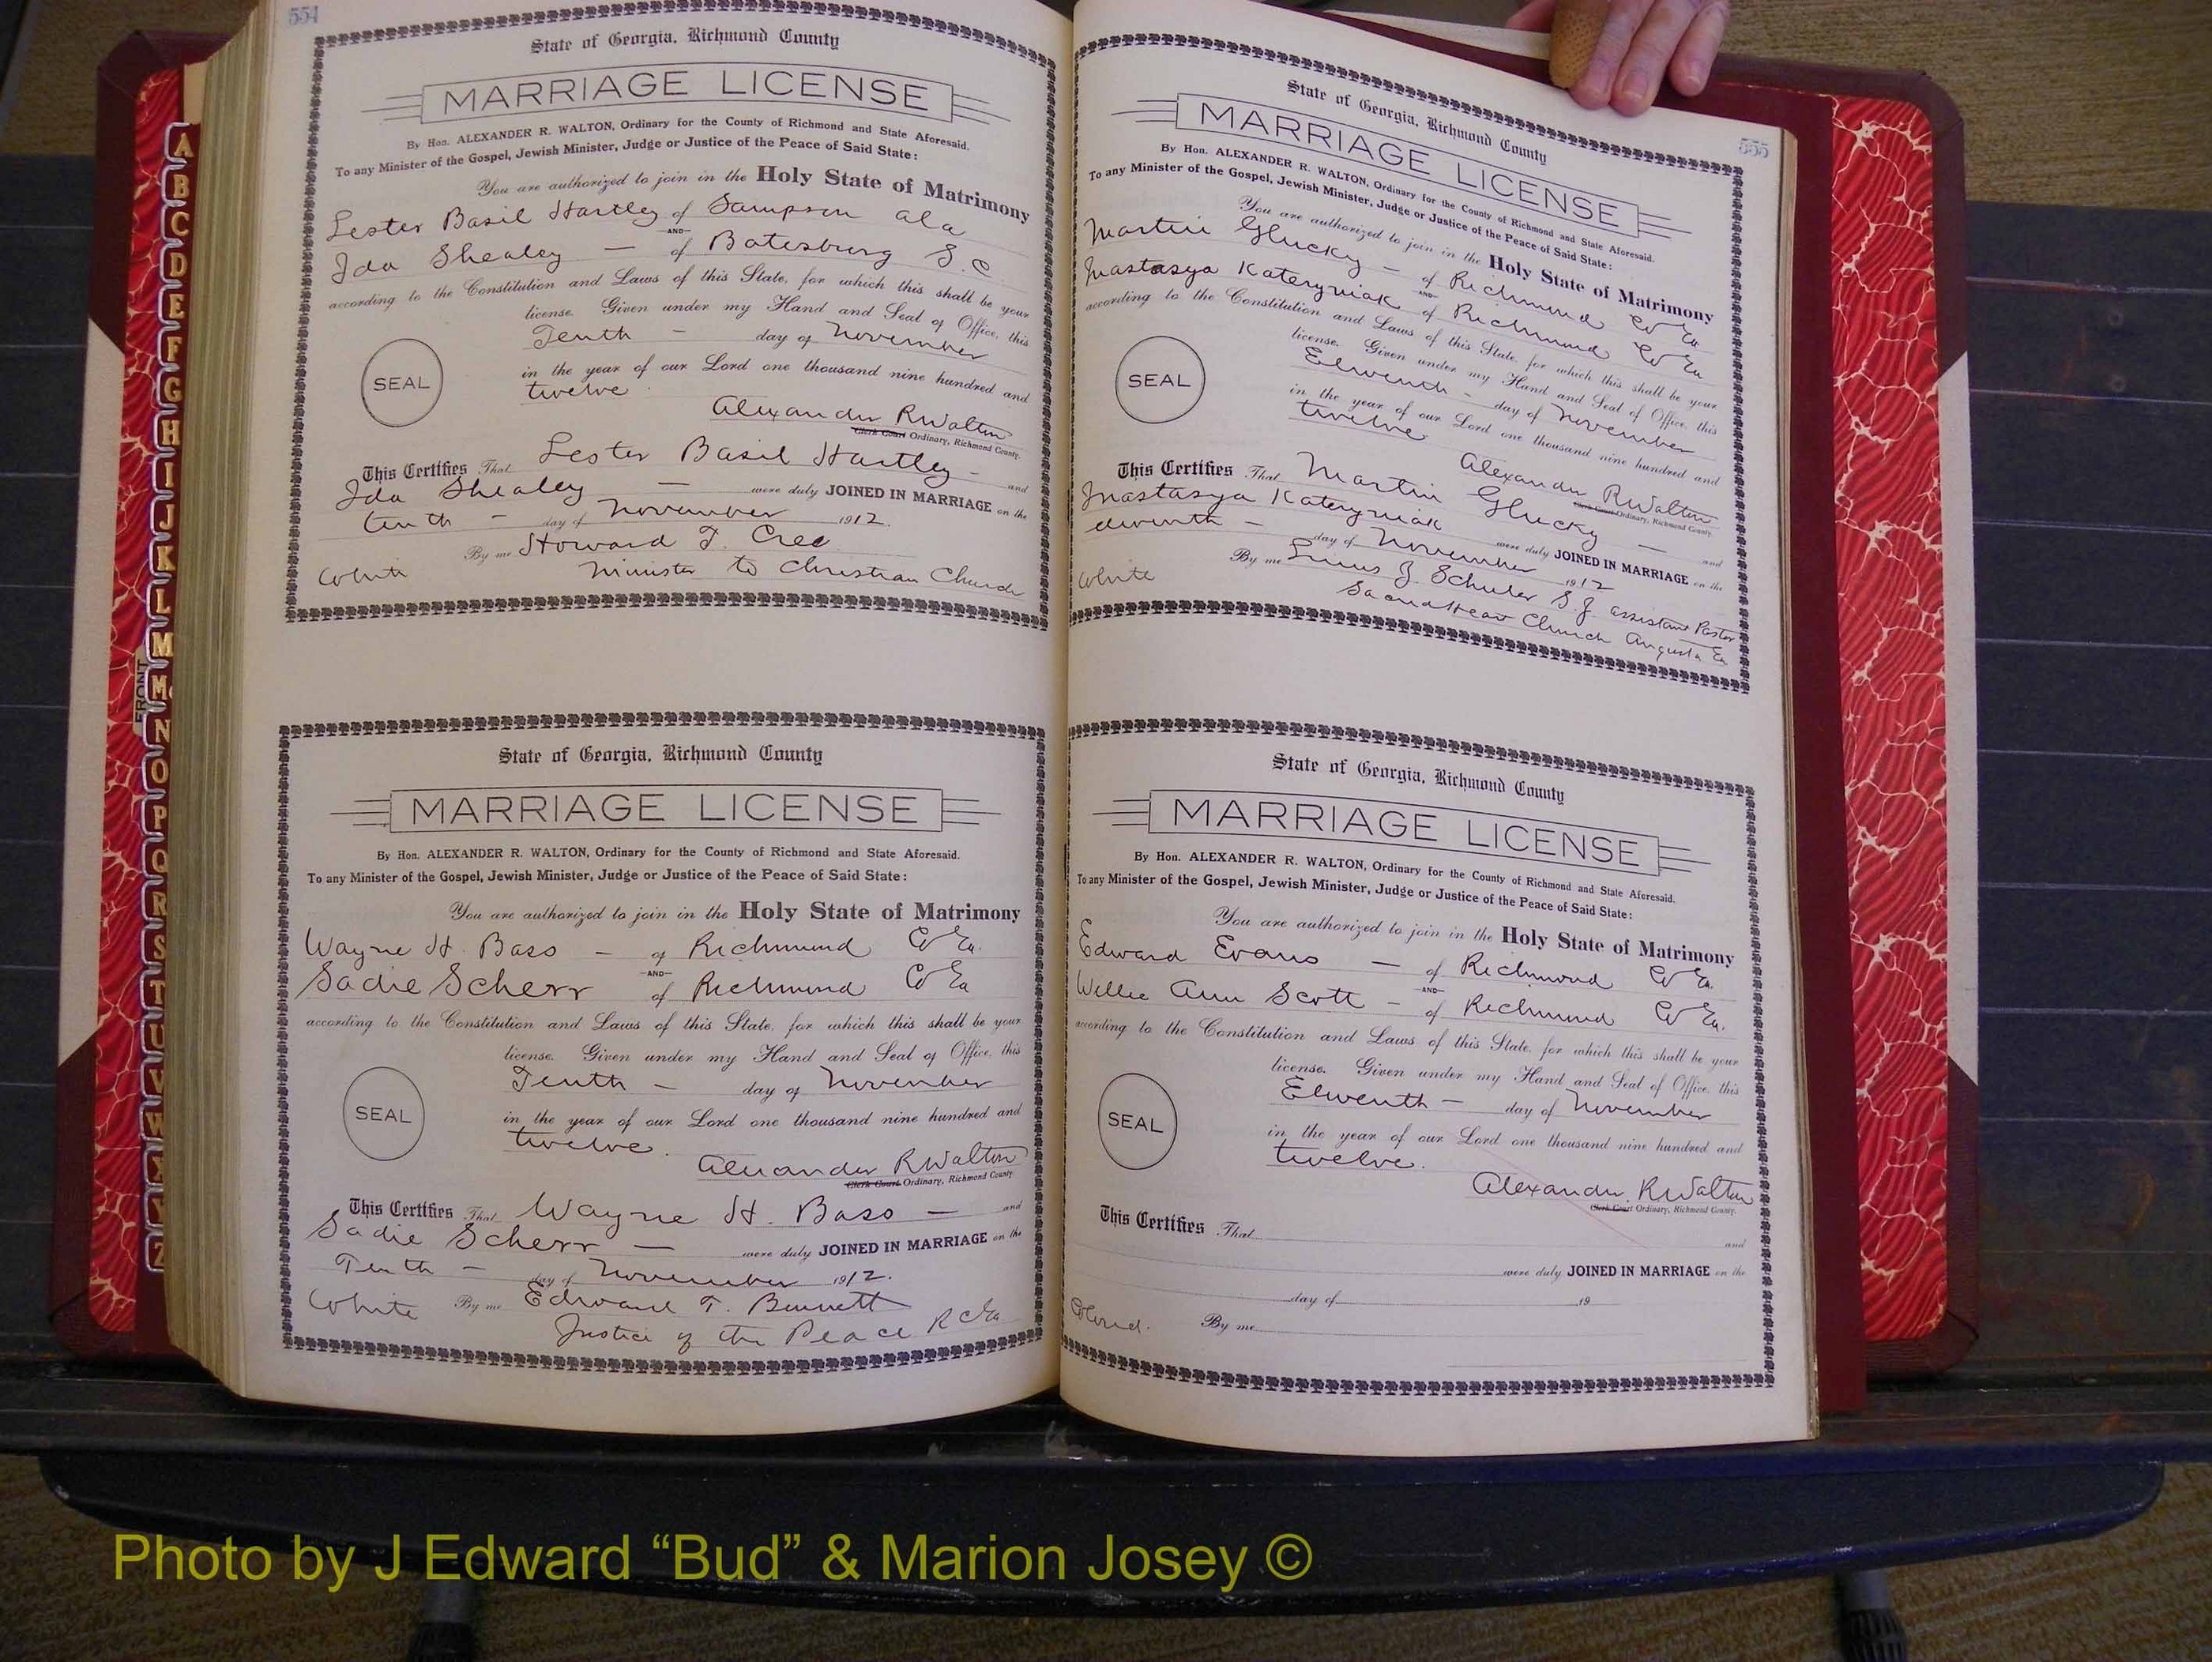 554
State of Georgia, Richmond County
MARRIAGE LICENSE
By Hon. ALEXANDER R. WALTON, Ordinary for the County of Richmond and State Aforesaid.
To any Minister of the Gospel, Jewish Minister, Judge or Justice of the Peace of Said State:
You are authorized to join in the Holy State of Matrimony
Lester Basil Hartley of Sampson Ala
AND
Ida Shealey — of Batesburg S.C
according to the Constitution and Laws of this State, for which this shall be your
license. Given under my Hand and Seal of Office, this
Tenth — day of November
in the year of our Lord one thousand nine hundred and
twelve.
SEAL
Alexander R Walton
Clerk Court Ordinary, Richmond County.
This Certifies That Lester Basil Hartley — and
Ida Shealey — were duly JOINED IN MARRIAGE on the
tenth — day of November 1912.
By me Howard T. Cree
White Minister to Christian Church
State of Georgia, Richmond County
MARRIAGE LICENSE
By Hon. ALEXANDER R. WALTON, Ordinary for the County of Richmond and State Aforesaid.
To any Minister of the Gospel, Jewish Minister, Judge or Justice of the Peace of Said State:
You are authorized to join in the Holy State of Matrimony
Wayne H. Bass — of Richmond Co Ga.
AND
Sadie Scherr of Richmond Co Ga
according to the Constitution and Laws of this State, for which this shall be your
license. Given under my Hand and Seal of Office, this
Tenth — day of November
in the year of our Lord one thousand nine hundred and
twelve.
SEAL
Alexander R Walton
Clerk Court Ordinary, Richmond County
This Certifies That Wayne H. Bass — and
Sadie Scherr — were duly JOINED IN MARRIAGE on the
Tenth — day of November 1912.
White By me Edward T. Bennett
Justice of the Peace R C Ga
555
State of Georgia, Richmond County
MARRIAGE LICENSE
By Hon. ALEXANDER R. WALTON, Ordinary for the County of Richmond and State Aforesaid.
To any Minister of the Gospel, Jewish Minister, Judge or Justice of the Peace of Said State:
You are authorized to join in the Holy State of Matrimony
Martin Glucky — of Richmond Co Ga
AND
Kateryniak of Richmond Co Ga
according to the Constitution and Laws of this State, for which this shall be your
license. Given under my Hand and Seal of Office, this
Eleventh — day of November
in the year of our Lord one thousand nine hundred and
twelve
SEAL
Alexander R Walton
Clerk Court Ordinary, Richmond County.
This Certifies That Martin Glucky — and
Kateryniak were duly JOINED IN MARRIAGE on the
eleventh — day of November 1912
White By me J. Schuler S.J. assistant Pastor
Sacred Heart Church Augusta Ga
State of Georgia, Richmond County
MARRIAGE LICENSE
By Hon. ALEXANDER R. WALTON, Ordinary for the County of Richmond and State Aforesaid.
To any Minister of the Gospel, Jewish Minister, Judge or Justice of the Peace of Said State:
You are authorized to join in the Holy State of Matrimony
Edward Evans — of Richmond Co Ga.
AND
Willie Ann Scott — of Richmond Co Ga.
according to the Constitution and Laws of this State, for which this shall be your
license. Given under my Hand and Seal of Office, this
Eleventh — day of November
in the year of our Lord one thousand nine hundred and
twelve.
SEAL
Alexander R Walton
Clerk Court Ordinary, Richmond County.
This Certifies That
and
were duly JOINED IN MARRIAGE on the
day of 19
Colored. By me
A
B
C
D
E
F
G
H
I
J
K
L
M
Mc
N
O
P
Q
R
S
T
U
V
W
X
Y
Z
FRONT
Photo by J Edward “Bud” & Marion Josey ©